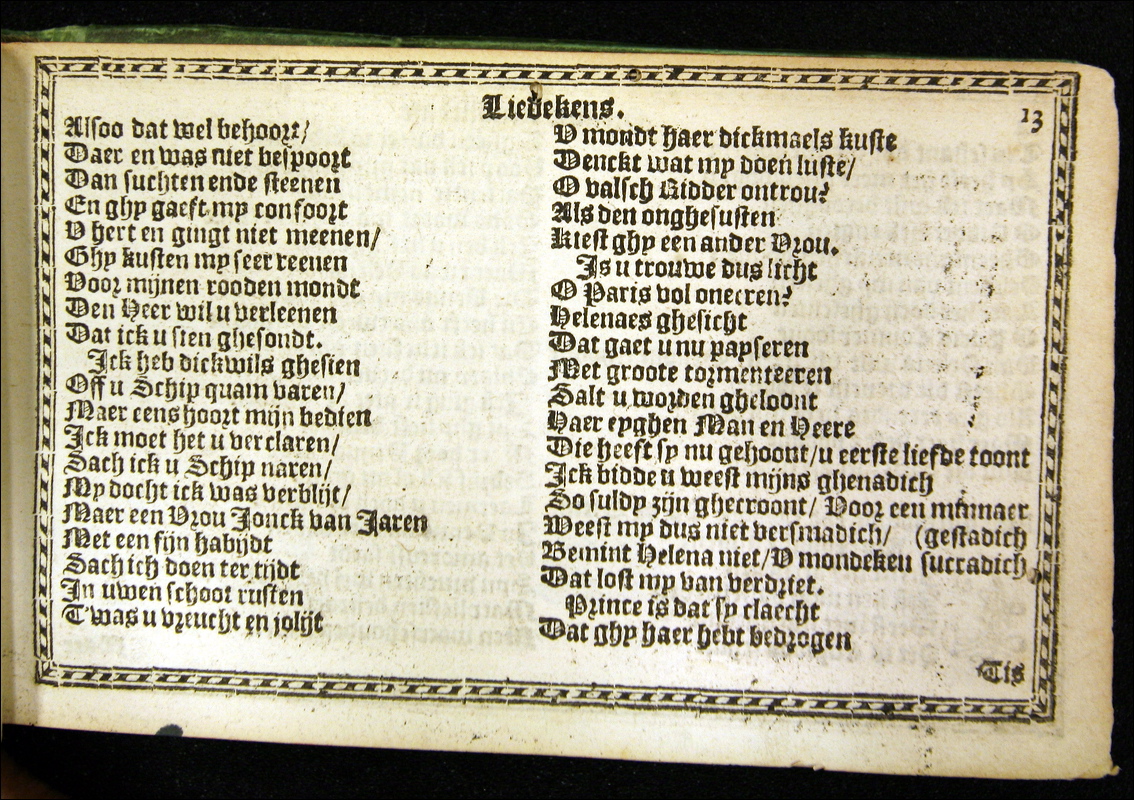 Liedekens.
13
Alsoo dat wel behoort/
Daer en was niet bespoort
Dan suchten ende steenen
En ghy gaeft my confoort
V hert en gingt niet meenen/
Ghy kusten my seer reenen
Voor mijnen rooden mondt
Den Heer wil u verleenen
Dat ick u sien ghesondt.
Ick heb dickwils ghesien
Off u Schip quam varen/
Maer eens hoort mijn bedien
Ick moet het u verclaren/
Sach ick u Schip naren/
My docht ick was verblijt/
Maer een Vrou Jonck van Jaren
Met een fijn habijdt
Sach ich doen ter tijdt
In uwen schoot rusten
T'was u vreucht en jolijt
V mondt haer dickmaels kuste
Denckt wat my doen luste/
O valsch Ridder ontrou?
Als den onghesusten
Kiest ghy een ander Vrou.
Is u trouwe dus licht
O Paris vol oneeren?
Helenaes ghesicht
Dat gaet u nu papseren
Met groote tormenteeren
Salt u worden gheloont
Haer eyghen Man en Heere
Die heeft sy nu gehoont/u eerste liefde toont
Ick bidde u weest mijns ghenadich
So suldy zijn ghecroont/ Voor een minnaer
Weest my dus niet versmadich/ (gestadich
Bemint Helena niet/V mondeken succadich
Dat lost my van verdriet.
Prince is dat sy claecht
Dat ghy haer hebt bedrogen
Tis